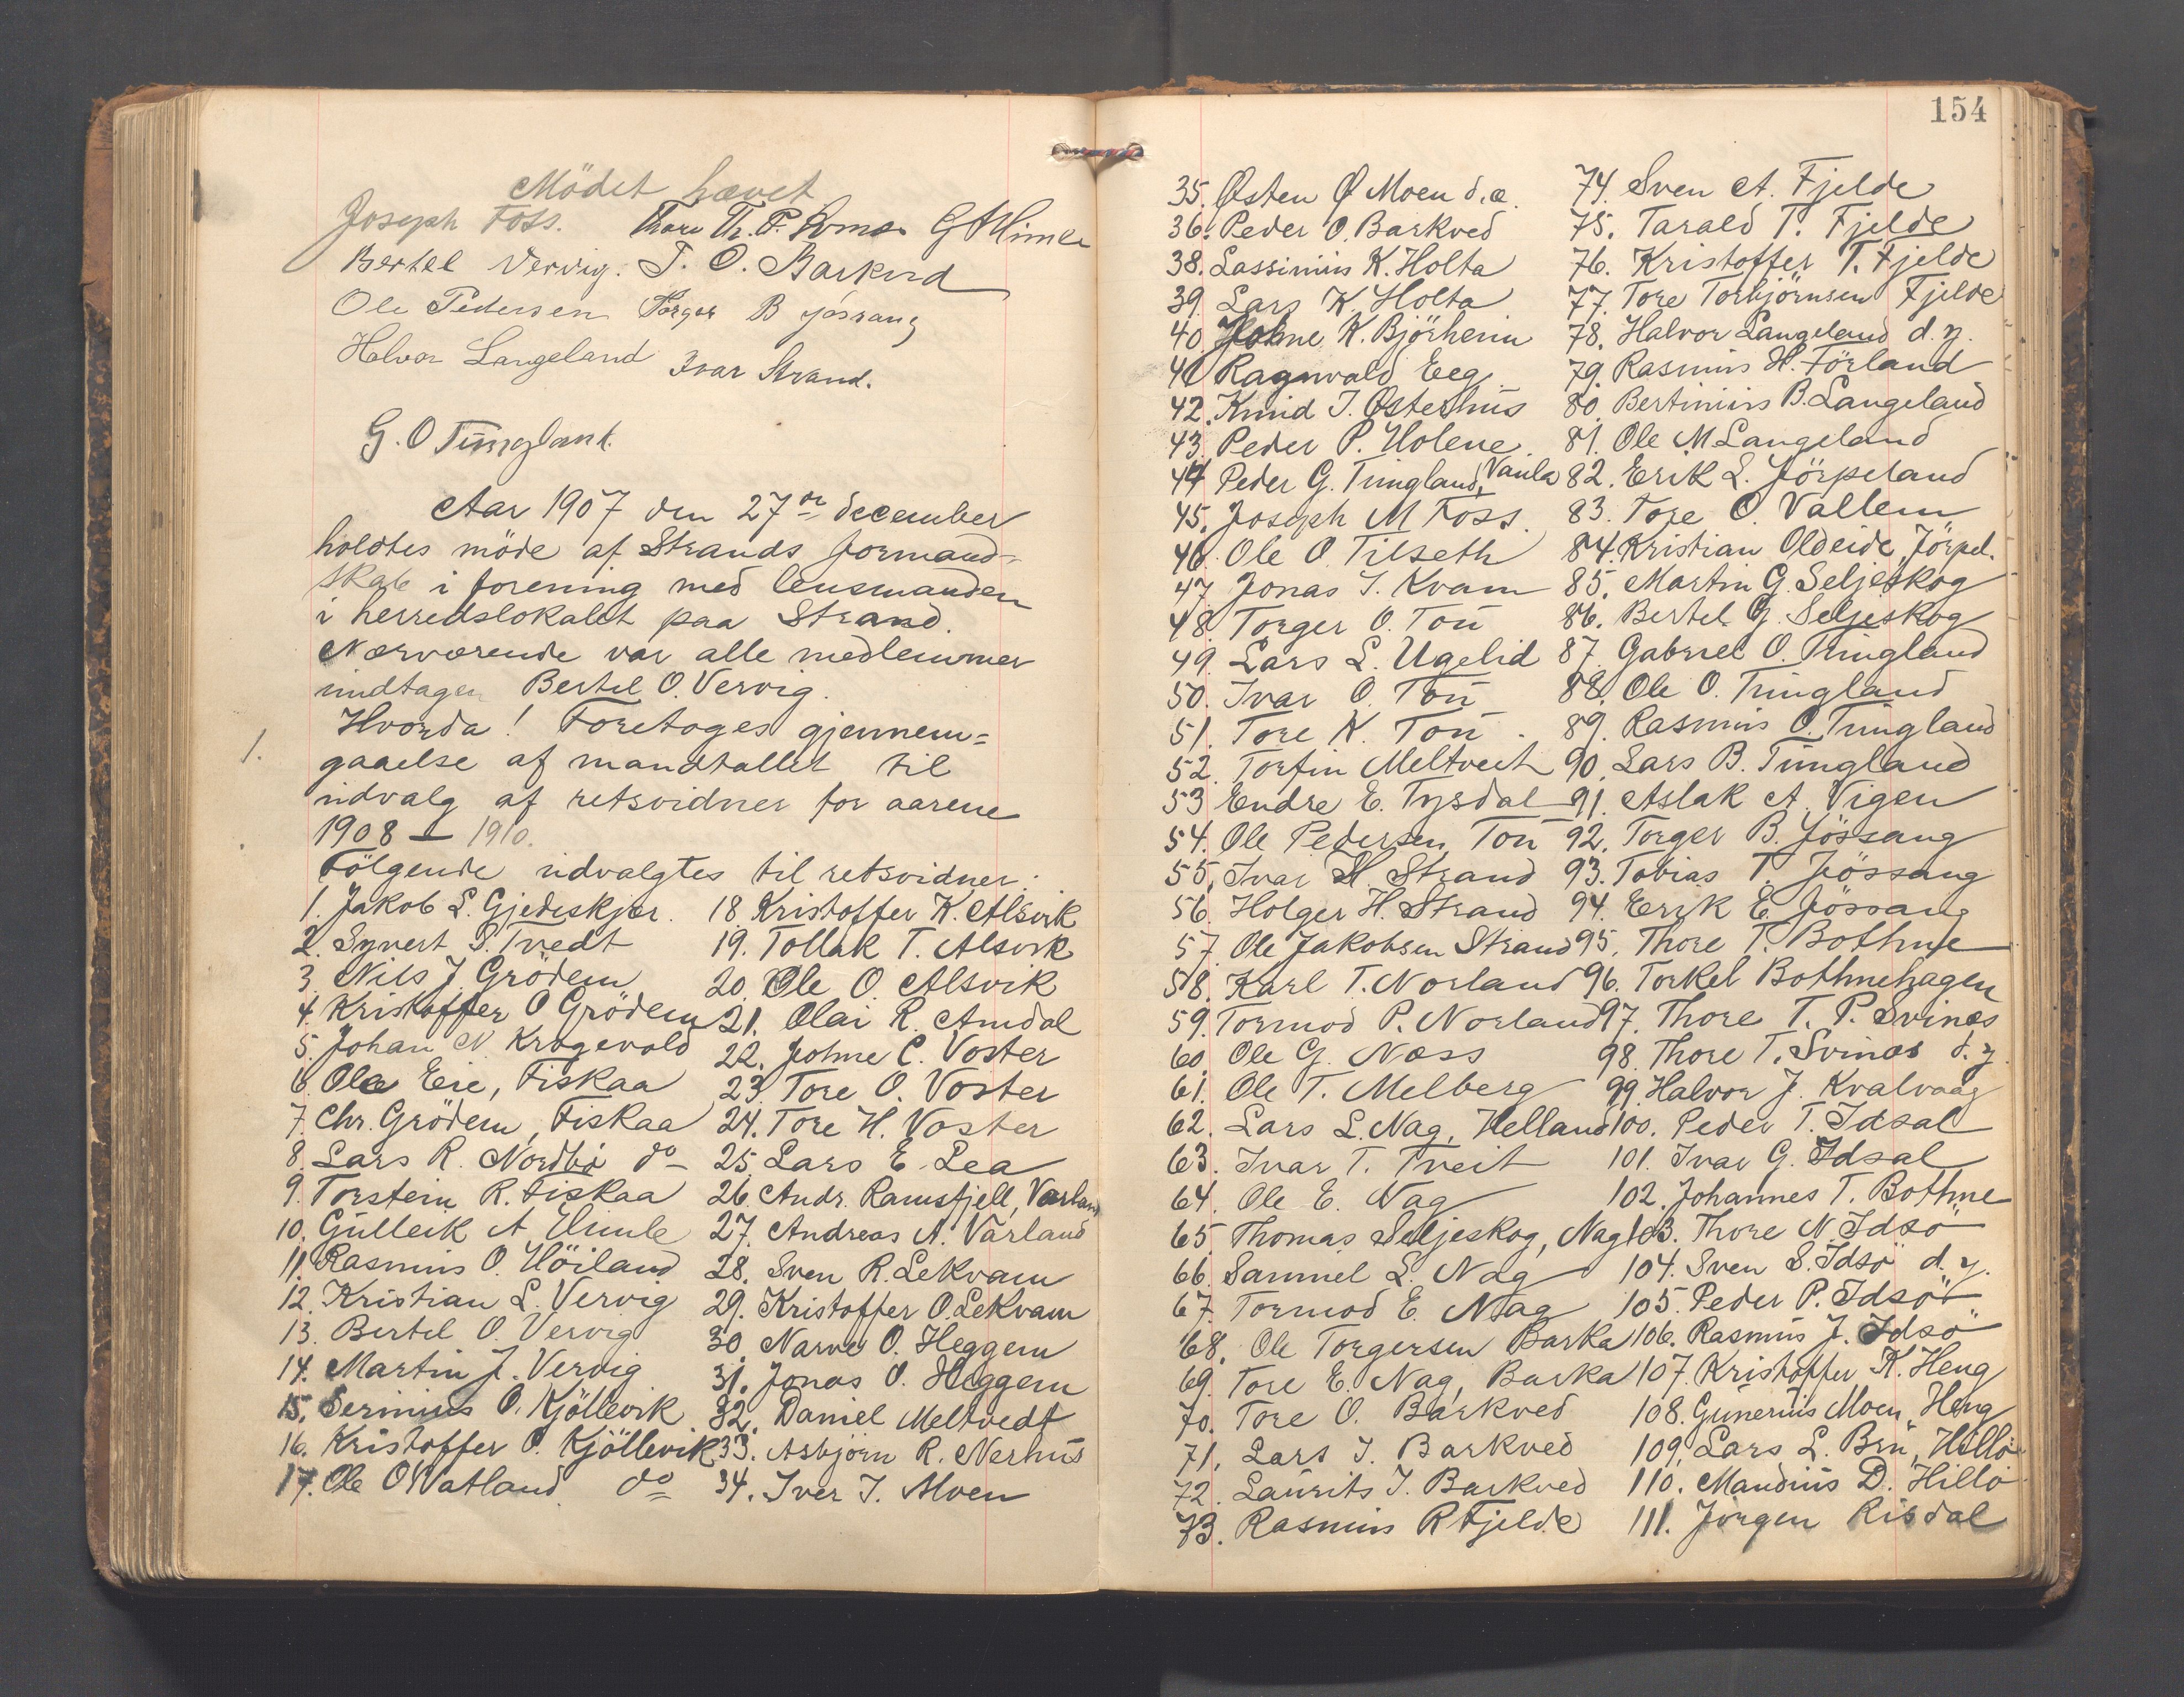 Mödet hævet
Joseph Foss. Thore Th. P. G A Himle
Bertel Vervig. T. O. Barkved
Ole Pedersen Torger B Jössang
Halvor Langeland Ivar Strand.
G. O Tungland.
Aar 1907 den 27de december
holdtes möde af Strands formand-
skab i forening med lensmanden
i herredslokalet paa Strand.
Nærværende var alle medlemmer
undtagen Bertel O. Vervig.
Hvorda! Foretoges gjennem=
1. gaaelse af mandtallet til
udvalg af retsvidner for aarene
1908 – 1910.
Fölgende udvalgtes til retsvidner:
1. Jakob L. Gjedeskjær.
2. Syvert S. Tvedt
3. Nils J. Grödem
4. Kristoffer O Grödem
5. Johan N. Kragevold
6. Ole Eie, Fiskaa
7. Chr. Grödem, Fiskaa
8. Lars R. Nordbö do
9. Torstein R. Fiskaa
10. Gulleik A Himle
11. Rasmus O. Höiland
12. Kristian L. Vervig
13. Bertel O. Vervig
14. Martin J. Vervig
15. Serinius O. Kjöllevik
16. Kristoffer O. Kjöllevik
17. Ole O Vatland do
18 Kristoffer K. Alsvik
19. Tollak T. Alsvik
20. Ole O. Alsvik
21. Olai R. Amdal
22. Johne C. Voster
23. Tore O. Voster
24. Tore H. Voster
25. Lars E. Lea
26. Andr. Ramsfjell, Varland
27. Andreas A. Varland
28. Sven R. Lekvam
29. Kristoffer O. Lekvam
30. Narve O. Heggem
31. Jonas O. Heggem
32. Daniel Meltvedt
33. Asbjörn R. Nerhus
34. Iver I. Moen
154
35. Østen Ø Moen d.æ.
36. Peder O. Barkved
38. Lassinius K. Holta
39. Lars K. Holta
40. Johne K. Björheim
41 Ragnvald Eeg.
42. Knud I. Østerhus
43. Peder P. Holene.
44 Peder G. Tungland, Vaula
45. Joseph M Foss.
46. Ole O. Tilseth
47 Jonas I. Kvam
48 Torger O. Tou
49. Lars L. Ugelid
50. Ivar O. Tou
51. Tore K. Tou
52. Torfin Meltveit
53 Endre E. Tysdal
54. Ole Pedersen, Tou
55. Ivar H Strand
56. Holger H. Strand
57. Ole Jakobsen Strand
58. Karl T. Norland
59. Tormod P. Norland
60. Ole G. Næss
61. Ole T. Melberg
62. Lars L. Nag, Helland
63. Ivar T. Tveit
64. Ole E. Nag
65. Thomas Seljeskog, Nag
66. Samuel L. Nag
67. Tormod E. Nag
68. Ole Torgersen Barka
69. Tore E. Nag, Barka
70. Tore O. Barkved
71. Lars I. Barkved
72. Laurits I. Barkved
73. Rasmus R Fjelde
74. Sven A. Fjelde
75. Tarald T. Fjelde
76. Kristoffer T. Fjelde
77. Tore Torbjörnsen Fjelde
78. Halvor Langeland d. y.
79. Rasmus H. Förland
80. Bertinius B. Langeland
81. Ole M Langeland
82. Erik L. Jörpeland
83. Tore O. Vallem
84. Kristian Oldeide, Jörpel.
85. Martin G. Seljeskog
86. Bertel G. Seljeskog
87. Gabriel O. Tungland
88. Ole O. Tungland
89. Rasmus O. Tungland
90. Lars B. Tungland
91. Aslak A. Vigen
92. Torger B. Jössang
93. Tobias T. Jössang
94. Erik E. Jössang
95. Thore T. Bothne
96. Torkel Bothnehagen
97. Thore T. P. Svines
98. Thore T. Svines d. y.
99. Halvor J. Kvalvaag
100. Peder T. Idsal
101. Ivar G. Idsal
102. Johannes T. Bothne
103. Thore N. Idsö
104. Sven S. Idsö d. y.
105. Peder P. Idsö
106. Rasmus J. Idsö
107. Kristoffer K. Heng
108. Gunerius Moen, Heng
109. Lars L. Bru, Hillö
110. Maudius D. Hillö
111. Jörgen Risdal